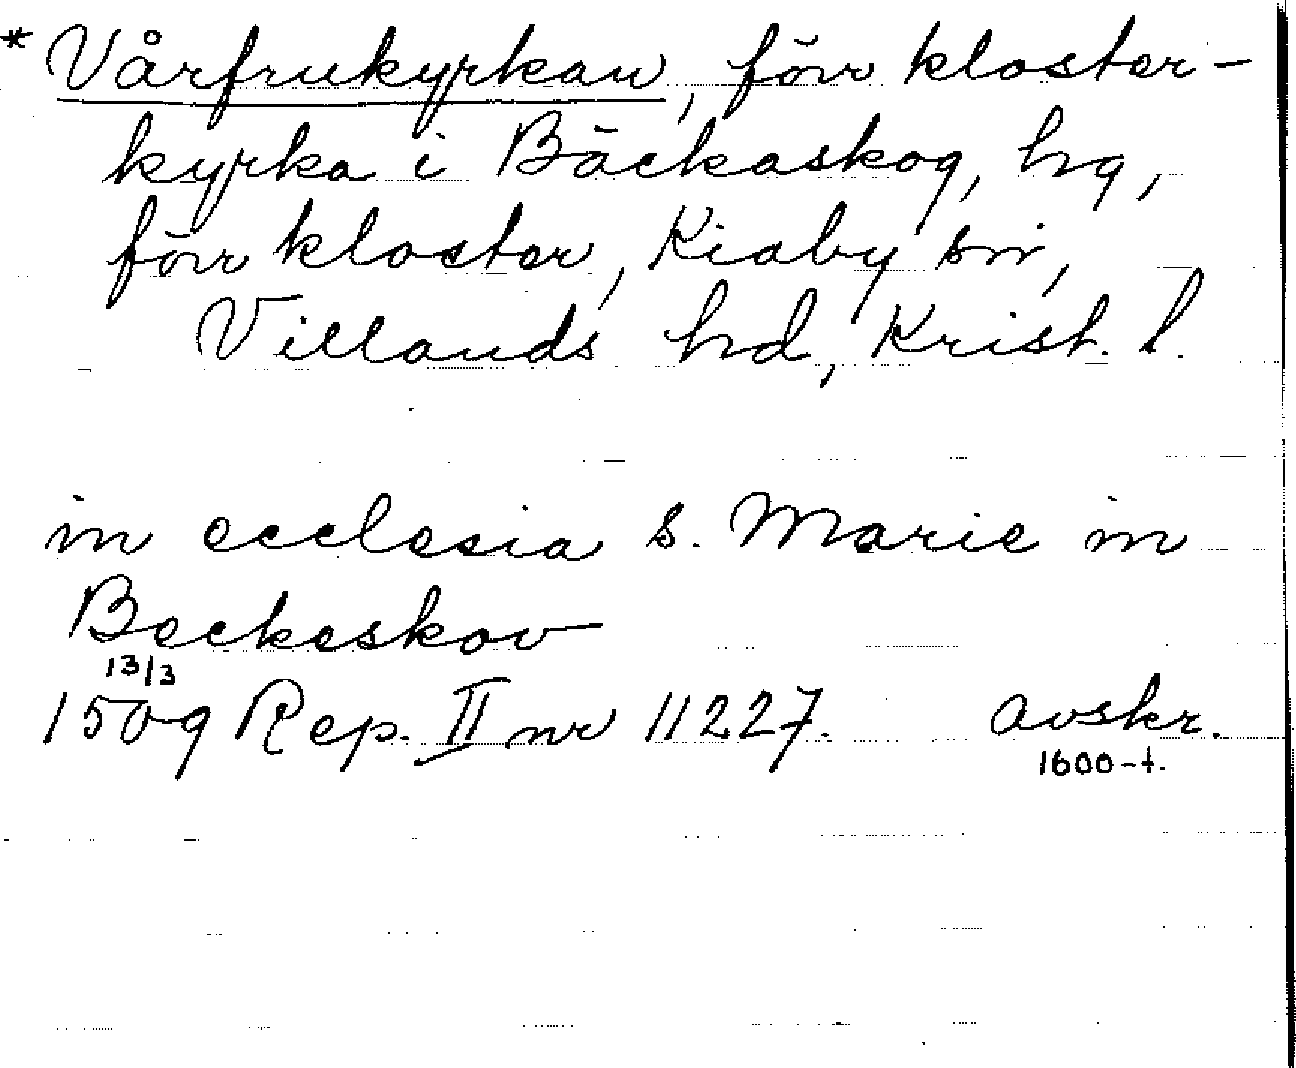 * Vårfrukyrkan, förr kloster-
kyrka i Bäckaskog, hg,
förr kloster, Kiaby sn,
Villands hd, Krist. l.
in ecclesia s. Marie in
Beckeskov
13/3
1509 Rep. II nr 11227. avskr.
1600-t.